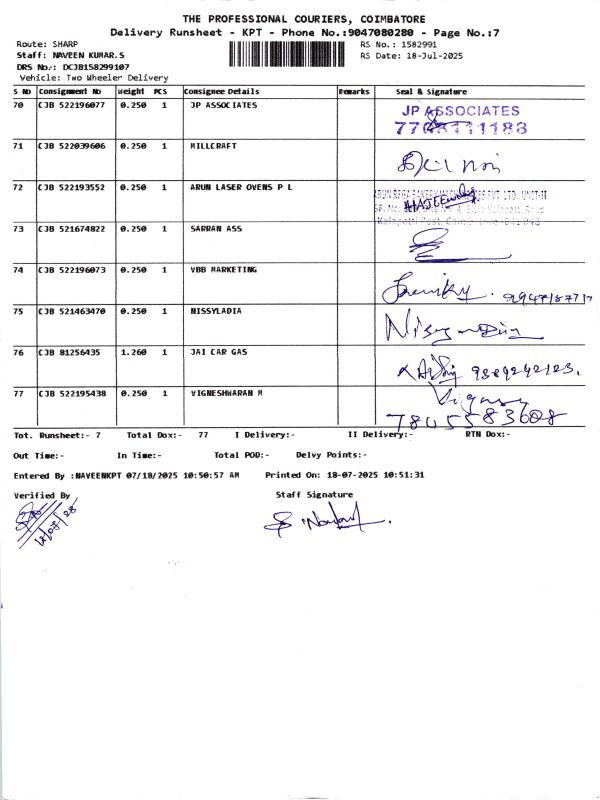 THE PROFESSIONAL COURIERS, COIMBATORE
Delivery Runsheet - KPT - Phone No.:9047080280 - Page No.:7
Route: SHARP RS No.: 1582991
Staff: NAVEEN KUMAR.S RS Date: 18-Jul-2025
DRS No.: DCJB158299107
Vehicle: Two Wheeler Delivery
S No Consignment No Weight PCS Consignee Details Remarks Seal & Signature
70 CJB 522196077 0.250 1 JP ASSOCIATES JP ASSOCIATES
71 CJB 522039606 0.250 1 MILLCRAFT
72 CJB 522193552 0.250 1 ARUN LASER OVENS P L
73 CJB 521674822 0.250 1 SARRAN ASS
74 CJB 522196073 0.250 1 VBB MARKETING
75 CJB 521463470 0.250 1 NISSYLADIA
76 CJB 81256435 1.260 1 JAI CAR GAS 9389242123.
77 CJB 522195438 0.250 1 VIGNESHWARAN M
7845583608
Tot. Runsheet:- 7 Total Dox:- 77 I Delivery:- II Delivery:- RTN Dox:-
Out Time:- In Time:- Total POD:- Delvy Points:-
Entered By :NAVEENKPT 07/18/2025 10:50:57 AM Printed On: 18-07-2025 10:51:31
Verified By Staff Signature